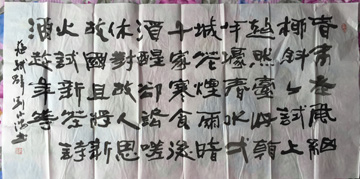 春未老風細
柳斜斜試上
超然臺上望
半壕春水一
城花煙雨暗
千家寒食後
酒醒卻咨嗟
休對故人思
故國且將新
火試新茶詩
酒趁年華